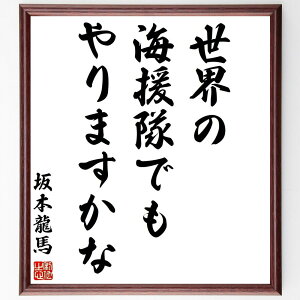 世界の
海援隊でも
やりますかな
坂本龍馬